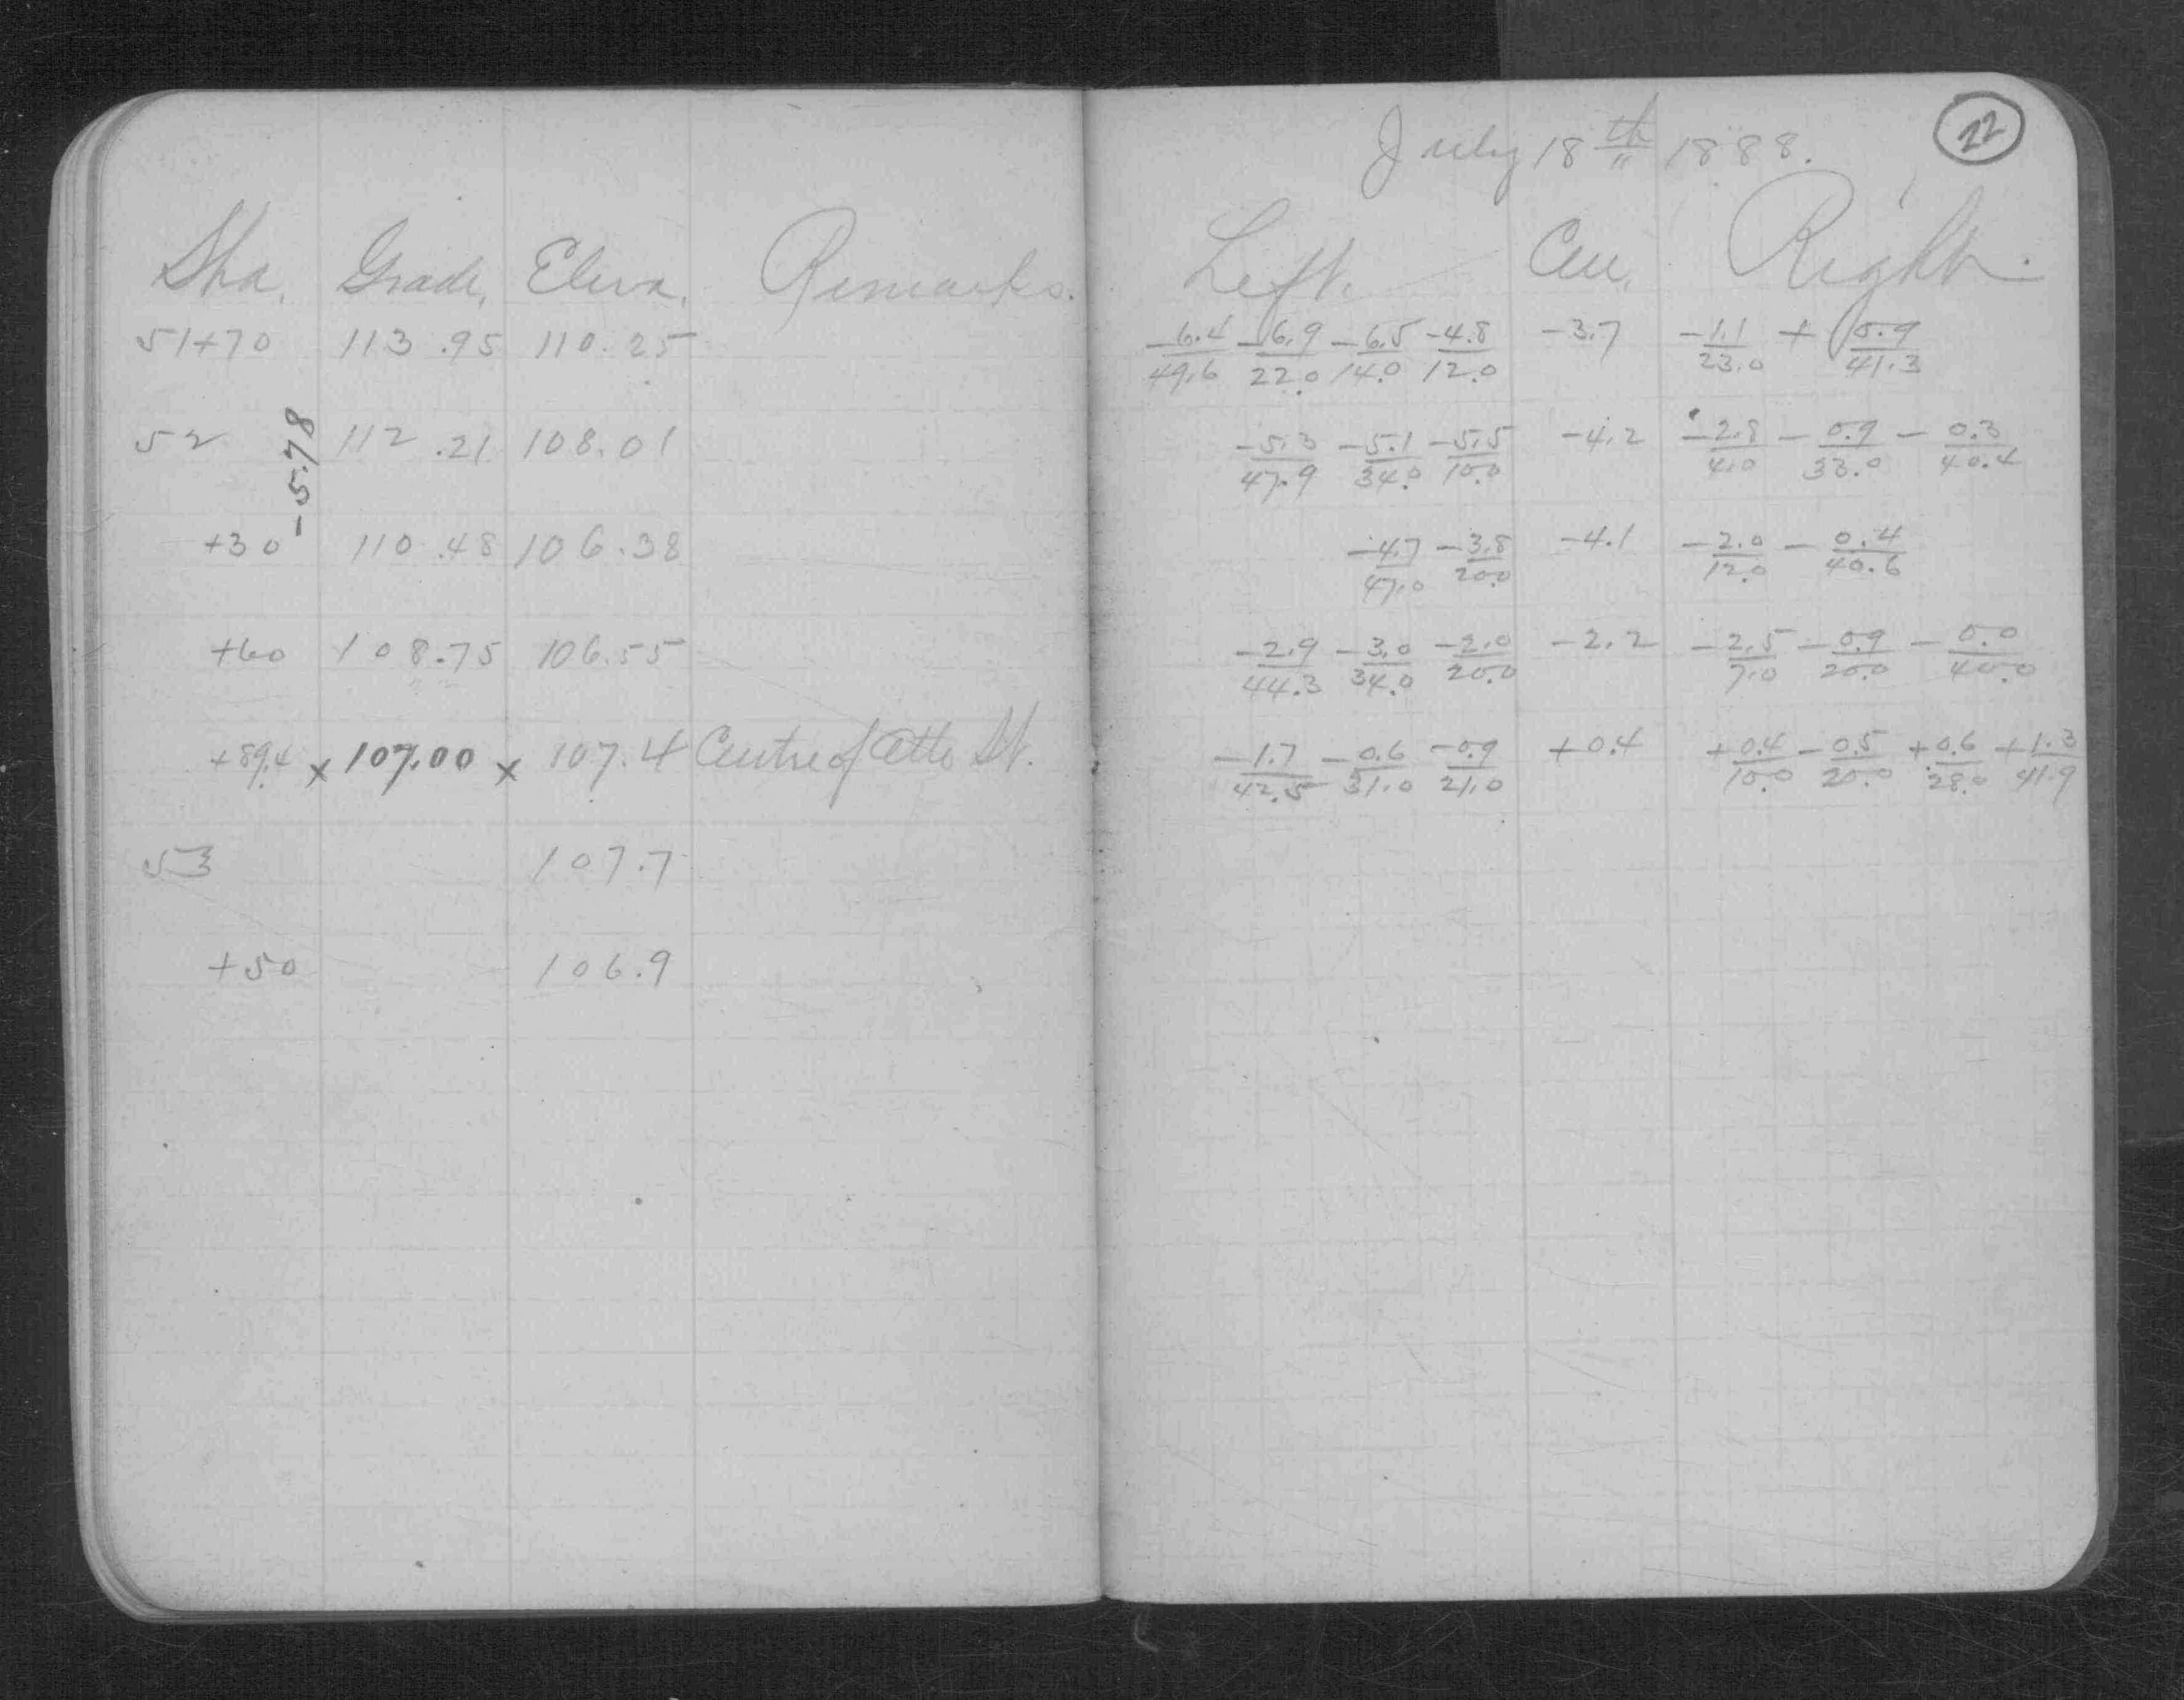 July 18th 1888.
22
Sta. Grade, Eleva. Remarks. Left. Cen. Right.
51+70 113.95 110.25 -6.4/49.6 -6.9/22.0 -6.5/14.0 -4.8/12.0 -3.7 -1.1/23.0 +0.9/41.3
52 112.21 108.01 -5.3/47.9 -5.1/34.0 -5.5/10.0 -4.2 -2.8/4.0 -0.9/33.0 -0.3/40.4
-5.78
+30 110.48 106.38 -4.7/47.0 -3.8/20.0 -4.1 -2.0/12.0 -0.4/40.6
+60 108.75 106.55 -2.9/44.3 -3.0/34.0 -2.0/20.0 -2.2 -2.5/7.0 -0.9/20.0 -0.0/40.0
+89.4 x 107.00 x 107.4 Centre of St. -1.7/42.5 -0.6/31.0 -0.9/21.0 +0.4 +0.4/10.0 -0.5/20.0 +0.6/28.0 +1.3/41.9
53 107.7
+50 106.9